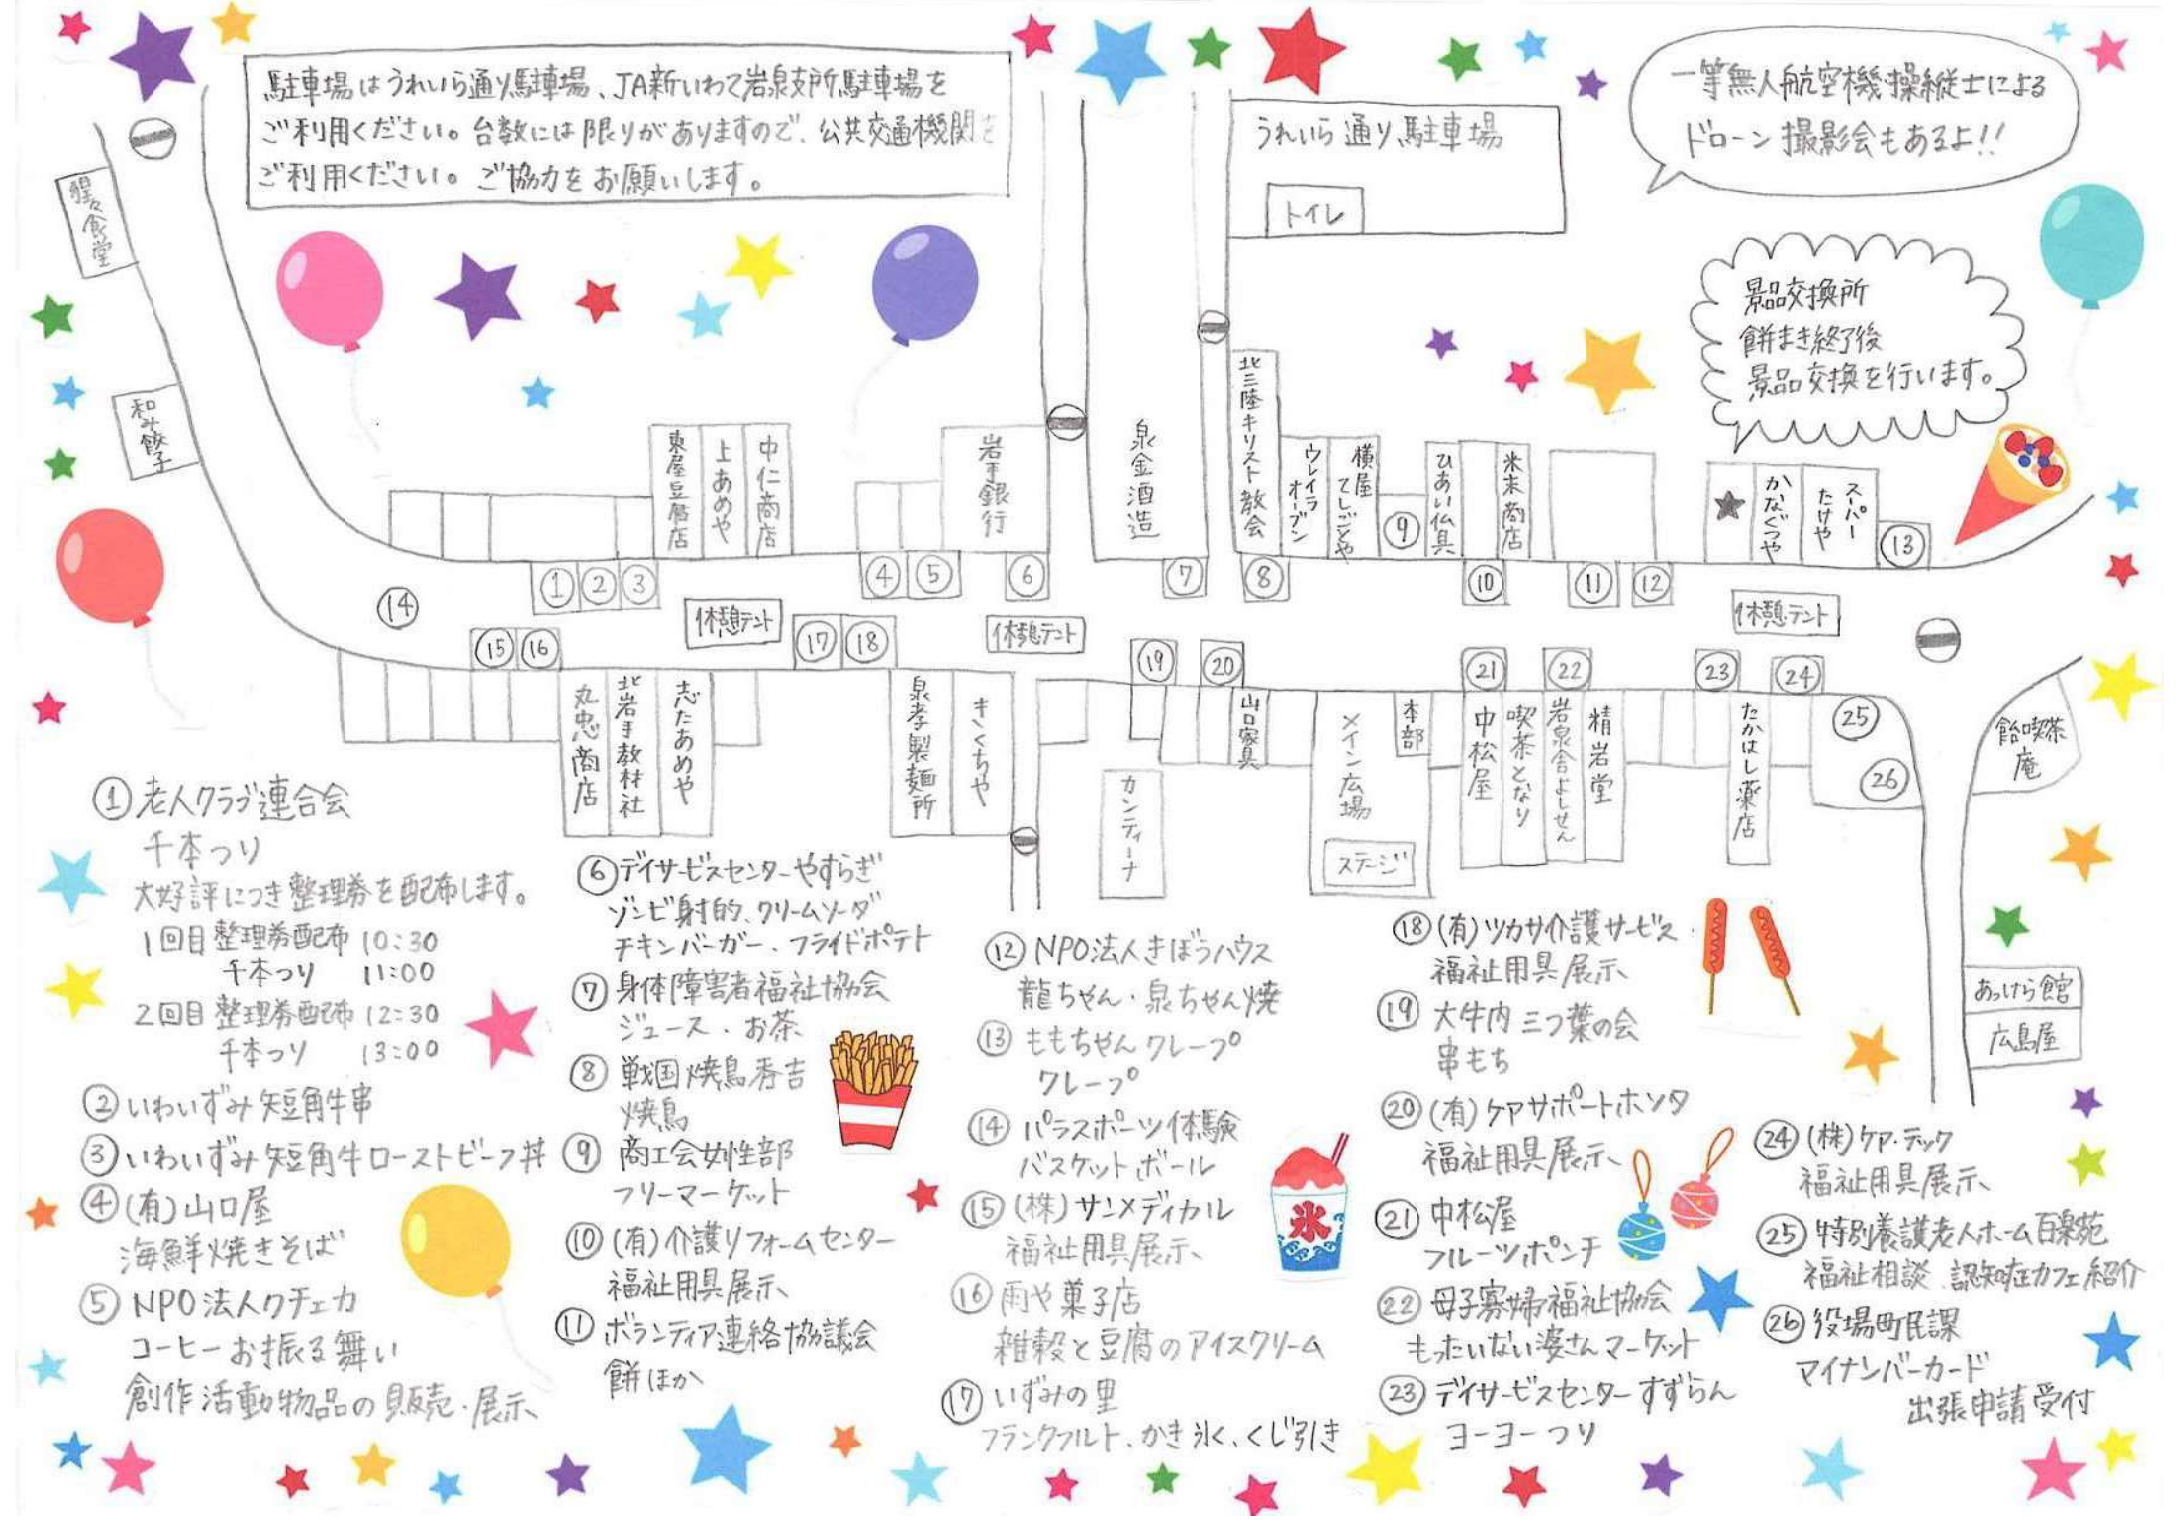 駐車場はうれいら通り駐車場、JA新いわて岩泉支所駐車場を
ご利用ください。台数には限りがありますので、公共交通機関を
ご利用ください。ご協力をお願いします。
うれいら通り駐車場
トイレ
一等無人航空機操縦士による
ドローン撮影会もあるよ!!
景品交換所
餅まき終了後
景品交換を行います。
食堂
和み餃子
東屋豆腐店
上あめや
中仁商店
岩手銀行
泉金酒造
北三陸キリスト教会
ウレイラ
オーブン
横屋
てしごとや
⑨
ひあい仏具
米末商店
★
かなぐつや
スーパー
たけや
⑬
①
②
③
④
⑤
⑥
⑦
⑧
⑩
⑪
⑫
⑭
休憩テント
休憩テント
休憩テント
⑮
⑯
⑰
⑱
⑲
⑳
㉑
㉒
㉓
㉔
㉕
㉖
丸忠商店
北岩手教材社
志たあめや
泉孝製麺所
きくちや
カンティーナ
山口家具
メイン広場
本部
ステージ
中松屋
喫茶となり
岩泉舎よしせん
精岩堂
たかはし薬店
飴喫茶
庵
あっけら館
広島屋
①老人クラブ連合会
千本つり
大好評につき整理券を配布します。
1回目 整理券配布 10:30
千本つり 11:00
2回目 整理券配布 12:30
千本つり 13:00
②いわいずみ短角牛串
③いわいずみ短角牛ローストビーフ丼
④(有)山口屋
海鮮焼きそば
⑤NPO法人クチェカ
コーヒーお振る舞い
創作活動物品の販売・展示
⑥デイサービスセンターやすらぎ
ゾンビ射的、クリームソーダ
チキンバーガー、フライドポテト
⑦身体障害者福祉協会
ジュース・お茶
⑧戦国焼鳥秀吉
焼鳥
⑨商工会女性部
フリーマーケット
⑩(有)介護リフォームセンター
福祉用具展示
⑪ボランティア連絡協議会
餅ほか
⑫NPO法人きぼうハウス
龍ちゃん・泉ちゃん焼
⑬ももちゃんクレープ
クレープ
⑭パラスポーツ体験
バスケットボール
⑮(株)サンメディカル
福祉用具展示
⑯雨や菓子店
雑穀と豆腐のアイスクリーム
⑰いずみの里
フランクフルト、かき氷、くじ引き
⑱(有)ツカサ介護サービス
福祉用具展示
⑲大牛内三つ葉の会
串もち
⑳(有)ケアサポートホソタ
福祉用具展示
㉑中松屋
フルーツポンチ
㉒母子寡婦福祉協会
もったいない婆さんマーケット
㉓デイサービスセンターすずらん
ヨーヨーつり
㉔(株)ケア・テック
福祉用具展示
㉕特別養護老人ホーム百楽苑
福祉相談、認知症カフェ紹介
㉖役場町民課
マイナンバーカード
出張申請受付
氷